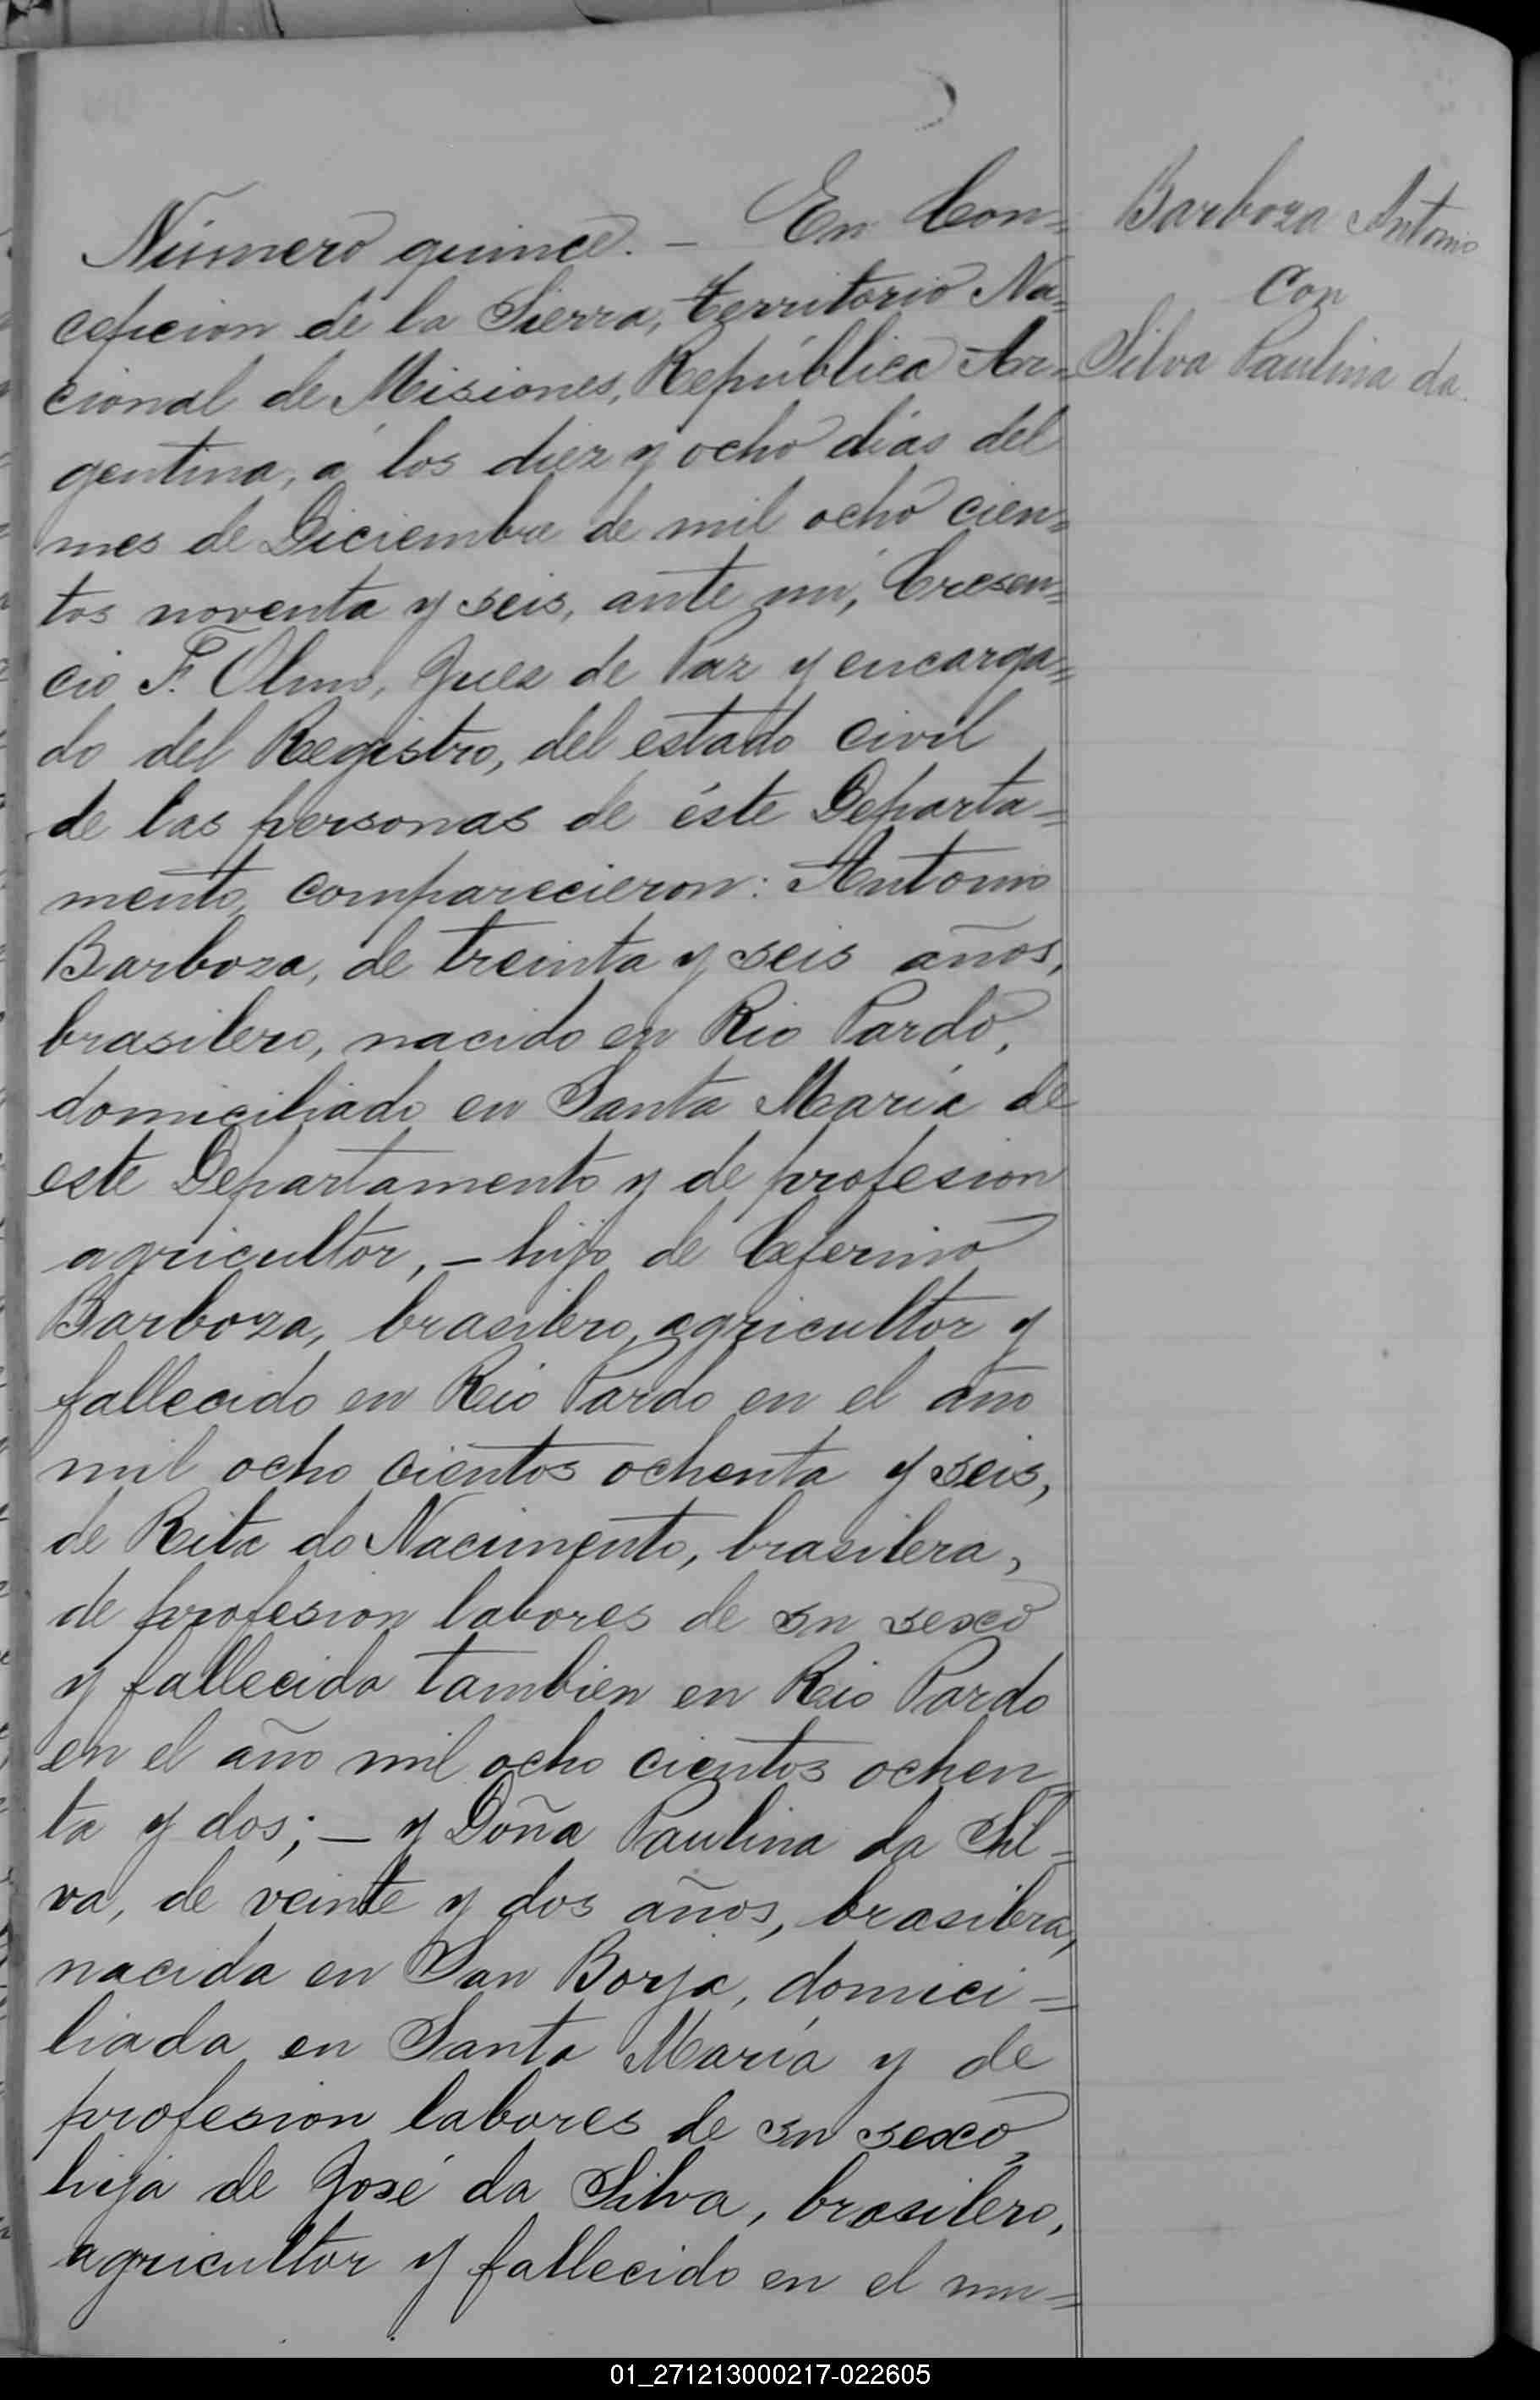 Número quince. — En Con=
cepcion de la Sierra, territorio Na=
cional de Misiones, República Ar=
gentina, á los diez y ocho dias del
mes de Diciembre de mil ocho cien=
tos noventa y seis, ante mi, Cresen=
cio F. Olmo, Juez de Paz y encarga=
do del Registro, del estado civil
de las personas de éste Departa=
mento, comparecieron: Antonio
Barboza, de treinta y seis años,
brasilero, nacido en Rio Pardo,
domiciliado en Santa María de
este Departamento y de profesion
agricultor, — hijo de Ceferino
Barboza, brasilero, agricultor y
fallecido en Rio Pardo en el año
mil ocho cientos ochenta y seis,
de Rita do Nacimento, brasilera,
de profesion labores de su sexo
y fallecida tambien en Rio Pardo
en el año mil ocho cientos ochen
ta y dos; — y Doña Paulina da Sil=
va, de veinte y dos años, brasilera,
nacida en San Borja, domici=
liada en Santa María y de
profesion labores de su sexo,
hija de José da Silva, brasilero,
agricultor y fallecido en el mu=
Barboza Antonio
Con
Silva Paulina da.
01_271213000217-022605